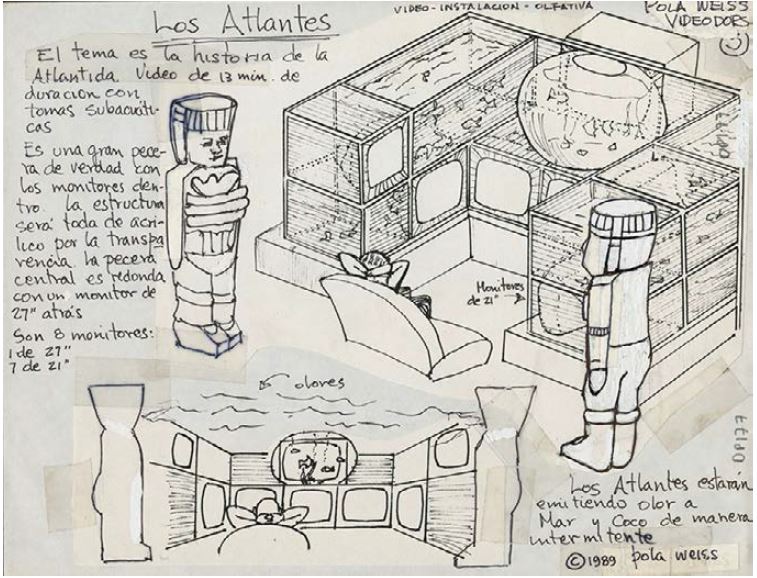 Los Atlantes
El tema es la historia de la
Atlantida. Video de 13 min. de
duracion con
tomas subacuáti-
cas
Es una gran pece-
ra de verdad con
los monitores den-
tro. la estructura
será toda de acri-
lico por la transpa
rencia la pecera
central es redonda
con un monitor de
27" atrás
Son 8 monitores:
1 de 27"
7 de 21"
VIDEO-INSTALACION-OLFATIVA
POLA WEISS
VIDEODORS
Monitores
de 21"
olores
Los Atlantes estarán
emitiendo olor a
Mar y Coco de manera
intermitente
©1989 pola weiss